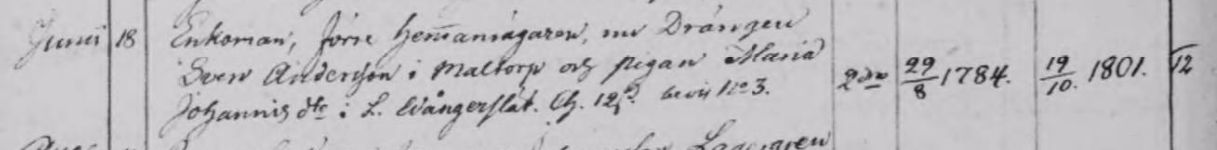 Junii 18 Enkoman, förre hem̅ansägaren, nu Drängen
Sven Anderson i Maltorp och pigan Maria
Johannis dtr i L. Wångerslät. Ch. 12 bevis No 3. 2dra 29/8 1784. 19/10. 1801. VI 12